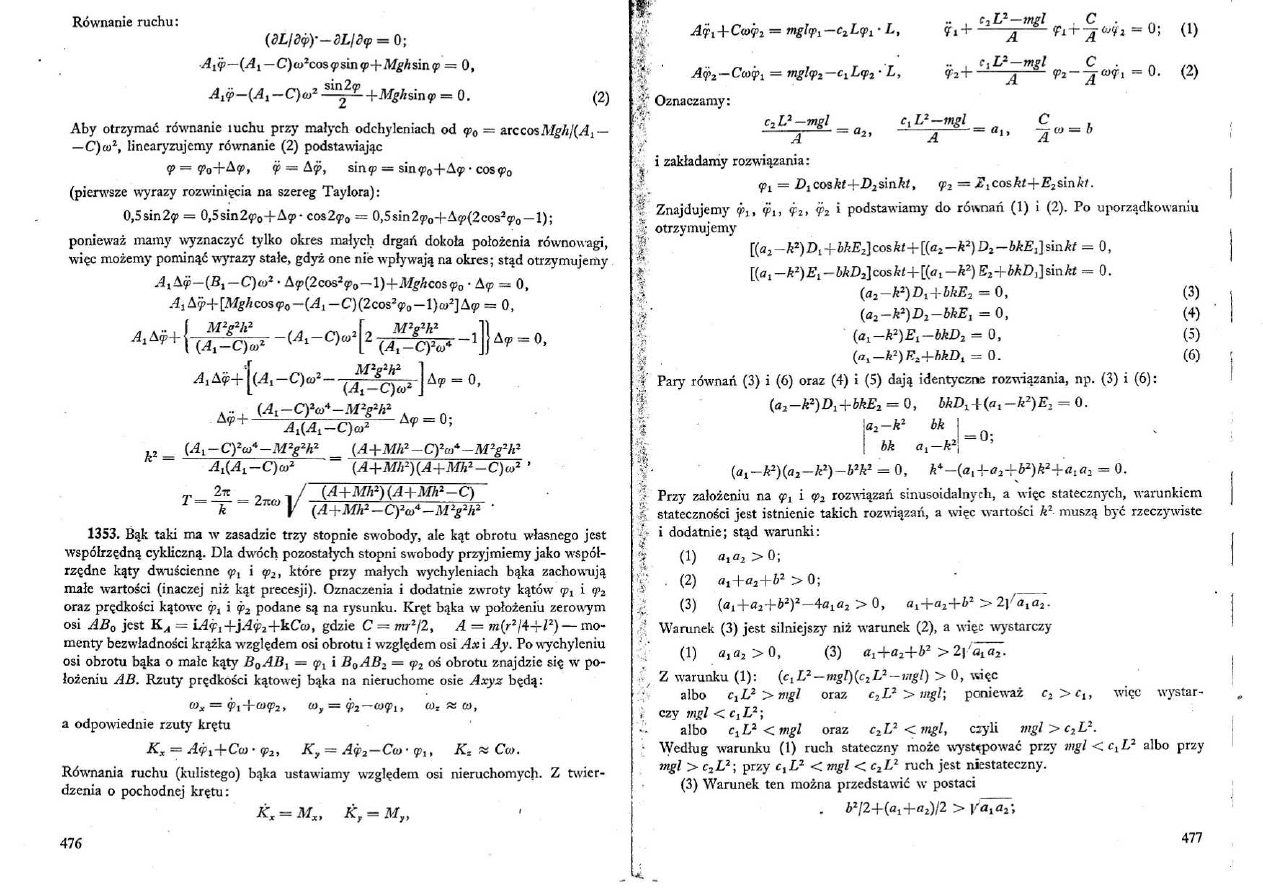 Równanie ruchu:
(∂L/∂φ̇)˙−∂L/∂φ = 0;
A₁φ̈−(A₁−C)ω²cos φ sin φ+Mgh sin φ = 0,
A₁φ̈−(A₁−C)ω² sin2φ/2 +Mgh sin φ = 0. (2)
Aby otrzymać równanie ruchu przy małych odchyleniach od φ₀ = arc cos Mgh/(A₁−
−C)ω², linearyzujemy równanie (2) podstawiając
φ = φ₀+Δφ, φ̈ = Δφ̈, sin φ = sin φ₀+Δφ · cos φ₀
(pierwsze wyrazy rozwinięcia na szereg Taylora):
0,5 sin 2φ = 0,5 sin 2φ₀+Δφ · cos 2φ₀ = 0,5 sin 2φ₀+Δφ(2cos²φ₀−1);
ponieważ mamy wyznaczyć tylko okres małych drgań dokoła położenia równowagi,
więc możemy pominąć wyrazy stałe, gdyż one nie wpływają na okres; stąd otrzymujemy
A₁Δφ̈−(B₁−C)ω² · Δφ(2cos²φ₀−1)+Mgh cos φ₀ · Δφ = 0,
A₁Δφ̈+[Mgh cos φ₀−(A₁−C)(2cos²φ₀−1)ω²]Δφ = 0,
A₁Δφ̈+{M²g²h²/((A₁−C)ω²) −(A₁−C)ω²[2 M²g²h²/((A₁−C)²ω⁴) −1]}Δφ = 0,
A₁Δφ̈+[(A₁−C)ω²− M²g²h²/((A₁−C)ω²)]Δφ = 0,
Δφ̈+ ((A₁−C)²ω⁴−M²g²h²)/(A₁(A₁−C)ω²) Δφ = 0;
k² = ((A₁−C)²ω⁴−M²g²h²)/(A₁(A₁−C)ω²) = ((A+Mh²−C)²ω⁴−M²g²h²)/((A+Mh²)(A+Mh²−C)ω²) ,
T = 2π/k = 2πω √((A+Mh²)(A+Mh²−C)/((A+Mh²−C)²ω⁴−M²g²h²)) .
1353. Bąk taki ma w zasadzie trzy stopnie swobody, ale kąt obrotu własnego jest
współrzędną cykliczną. Dla dwóch pozostałych stopni swobody przyjmiemy jako współ-
rzędne kąty dwuścienne φ₁ i φ₂, które przy małych wychyleniach bąka zachowują
małe wartości (inaczej niż kąt precesji). Oznaczenia i dodatnie zwroty kątów φ₁ i φ₂
oraz prędkości kątowe φ̇₁ i φ̇₂ podane są na rysunku. Kręt bąka w położeniu zerowym
osi AB₀ jest K_A = iAφ̇₁+jAφ̇₂+kCω, gdzie C = mr²/2, A = m(r²/4+l²) — mo-
menty bezwładności krążka względem osi obrotu i względem osi Ax i Ay. Po wychyleniu
osi obrotu bąka o małe kąty B₀AB₁ = φ₁ i B₀AB₂ = φ₂ oś obrotu znajdzie się w po-
łożeniu AB. Rzuty prędkości kątowej bąka na nieruchome osie Axyz będą:
ωₓ = φ̇₁+ωφ₂, ω_y = φ̇₂−ωφ₁, ω_z ≈ ω,
a odpowiednie rzuty krętu
Kₓ = Aφ̇₁+Cω · φ₂, K_y = Aφ̇₂−Cω · φ₁, K_z ≈ Cω.
Równania ruchu (kulistego) bąka ustawiamy względem osi nieruchomych. Z twier-
dzenia o pochodnej krętu:
K̇ₓ = Mₓ, K̇_y = M_y,
476
Aφ̈₁+Cωφ̇₂ = mglφ₁−c₂Lφ₁ · L, φ̈₁+ (c₂L²−mgl)/A φ₁+ C/A ωφ̇₂ = 0; (1)
Aφ̈₂−Cωφ̇₁ = mglφ₂−c₁Lφ₂ · L, φ̈₂+ (c₁L²−mgl)/A φ₂− C/A ωφ̇₁ = 0. (2)
Oznaczamy:
(c₂L²−mgl)/A = a₂, (c₁L²−mgl)/A = a₁, C/A ω = b
i zakładamy rozwiązania:
φ₁ = D₁cos kt+D₂sin kt, φ₂ = E₁cos kt+E₂sin kt.
Znajdujemy φ̇₁, φ̈₁, φ̇₂, φ̈₂ i podstawiamy do równań (1) i (2). Po uporządkowaniu
otrzymujemy
[(a₂−k²)D₁+bkE₂]cos kt+[(a₂−k²)D₂−bkE₁]sin kt = 0,
[(a₁−k²)E₁−bkD₂]cos kt+[(a₁−k²)E₂+bkD₁]sin kt = 0.
(a₂−k²)D₁+bkE₂ = 0, (3)
(a₂−k²)D₂−bkE₁ = 0, (4)
(a₁−k²)E₁−bkD₂ = 0, (5)
(a₁−k²)E₂+bkD₁ = 0. (6)
Pary równań (3) i (6) oraz (4) i (5) dają identyczne rozwiązania, np. (3) i (6):
(a₂−k²)D₁+bkE₂ = 0, bkD₁+(a₁−k²)E₂ = 0.
|a₂−k² bk|
|bk a₁−k²| = 0;
(a₁−k²)(a₂−k²)−b²k² = 0, k⁴−(a₁+a₂+b²)k²+a₁a₂ = 0.
Przy założeniu na φ₁ i φ₂ rozwiązań sinusoidalnych, a więc statecznych, warunkiem
stateczności jest istnienie takich rozwiązań, a więc wartości k² muszą być rzeczywiste
i dodatnie; stąd warunki:
(1) a₁a₂ > 0;
(2) a₁+a₂+b² > 0;
(3) (a₁+a₂+b²)²−4a₁a₂ > 0, a₁+a₂+b² > 2√a₁a₂.
Warunek (3) jest silniejszy niż warunek (2), a więc wystarczy
(1) a₁a₂ > 0, (3) a₁+a₂+b² > 2√a₁a₂.
Z warunku (1): (c₁L²−mgl)(c₂L²−mgl) > 0, więc
albo c₁L² > mgl oraz c₂L² > mgl; ponieważ c₂ > c₁, więc wystar-
czy mgl < c₁L²;
albo c₁L² < mgl oraz c₂L² < mgl, czyli mgl > c₂L².
Według warunku (1) ruch stateczny może występować przy mgl < c₁L² albo przy
mgl > c₂L²; przy c₁L² < mgl < c₂L² ruch jest niestateczny.
(3) Warunek ten można przedstawić w postaci
b²/2+(a₁+a₂)/2 > √a₁a₂;
477